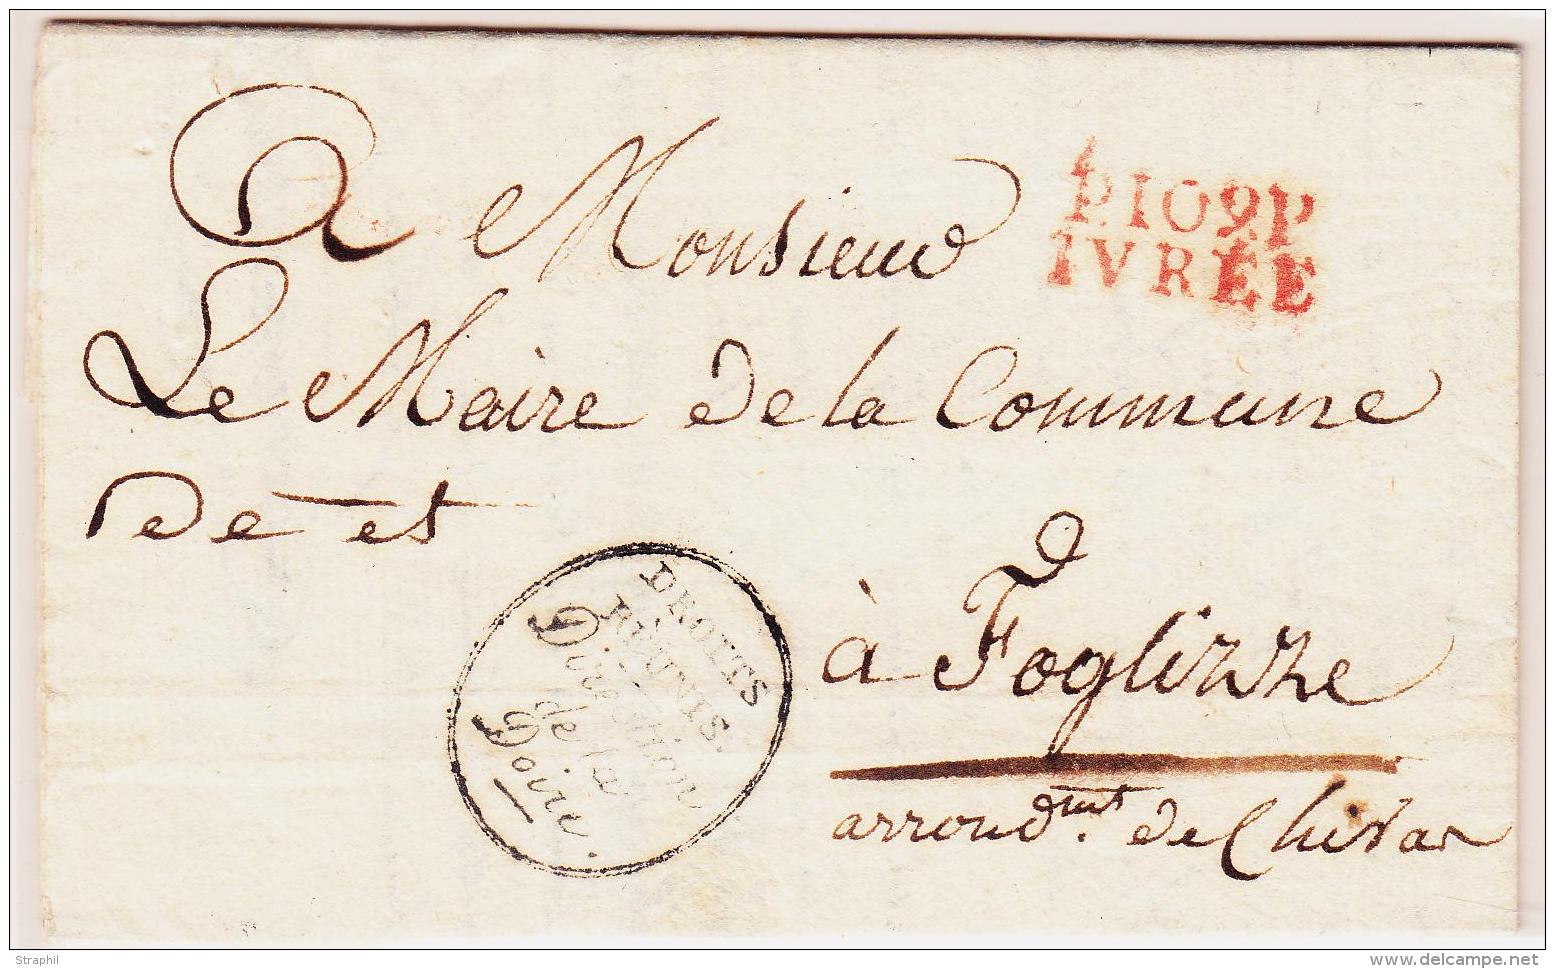 A Monsieur
P.109.P
IVRÉE
Le Maire de la Commune
De et
à Foglizze
arrond.mt de Chivas
DROITS
RÉUNIS.
Direction
de la
Doire.
Straphil
delcampe.net